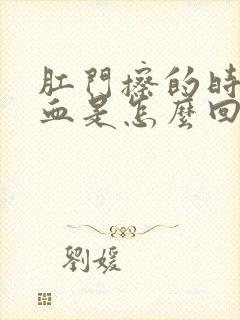 肛門擦的時
血是怎麼回
劉媛